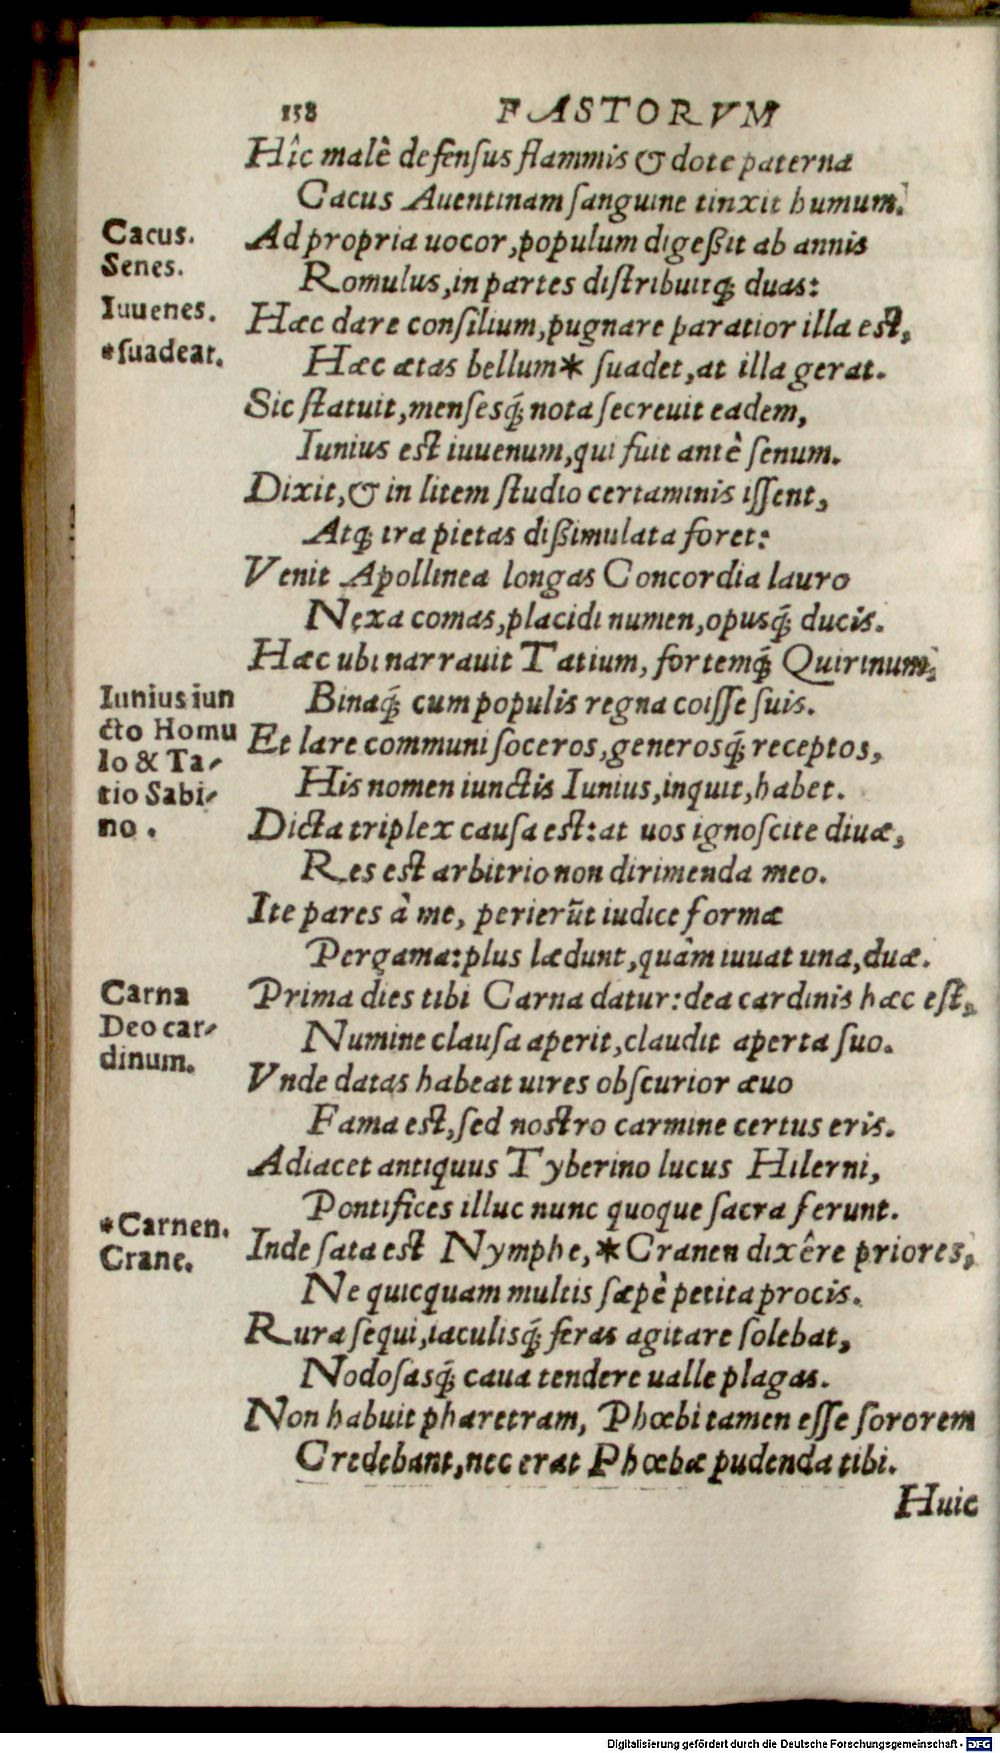 158 FASTORVM
Hîc malè defensus flammis & dote paterna
Cacus Auentinam sanguine tinxit humum.
Cacus.
Senes.
Ad propria uocor, populum digeßit ab annis
Romulus, in partes distribuitq́; duas:
Iuuenes.
Hæc dare consilium, pugnare paratior illa est,
*suadeat.
Hæc ætas bellum* suadet, at illa gerat.
Sic statuit, mensesq́; nota secreuit eadem,
Iunius est iuuenum, qui fuit antè senum.
Dixit, & in litem studio certaminis issent,
Atq; ira pietas dißimulata foret:
Venit Apollinea longas Concordia lauro
Nexa comas, placidi numen, opusq́; ducis.
Hæc ubi narrauit Tatium, fortemq́; Quirinum,
Iunius iun
cto Homu
lo & Ta-
tio Sabi-
no.
Binaq́; cum populis regna coisse suis.
Et lare communi soceros, generosq́; receptos,
His nomen iunctis Iunius, inquit, habet.
Dicta triplex causa est: at uos ignoscite diuæ,
Res est arbitrio non dirimenda meo.
Ite pares à me, perierũt iudice formæ
Pergama: plus lædunt, quàm iuuat una, duæ.
Carna
Deo car-
dinum.
Prima dies tibi Carna datur: dea cardinis hæc est,
Numine clausa aperit, claudit aperta suo.
Vnde datas habeat uires obscurior æuo
Fama est, sed nostro carmine certus eris.
Adiacet antiquus Tyberino lucus Hilerni,
Pontifices illuc nunc quoque sacra ferunt.
*Carnen.
Crane.
Inde sata est Nymphe, *Cranen dixêre priores,
Ne quicquam multis sæpè petita procis.
Rura sequi, iaculisq́; feras agitare solebat,
Nodosasq́; caua tendere ualle plagas.
Non habuit pharetram, Phœbi tamen esse sororem
Credebant, nec erat Phœbæ pudenda tibi.
Huic
Digitalisierung gefördert durch die Deutsche Forschungsgemeinschaft - DFG